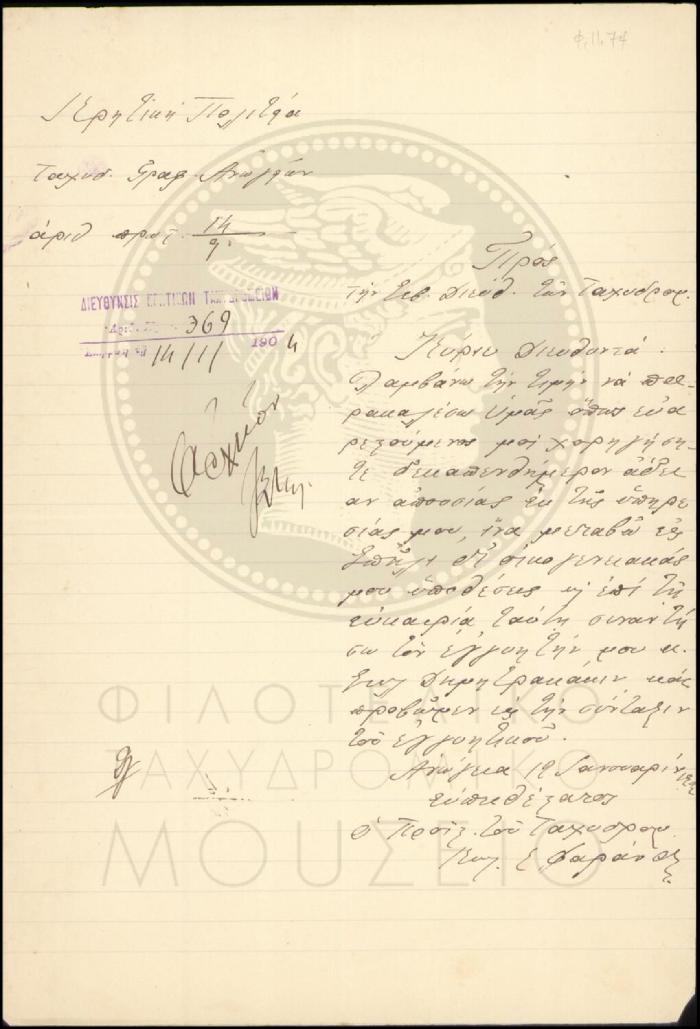 Φ.11.74
Κρητική Πολιτεία
Ταχυδ. Γραφ. Ανωγείων
άριθ πρωτ. 14/9
ΔΙΕΥΘΥΝΣΙΣ ΚΡΗΤΙΚΩΝ ΤΑΧΥΔΡΟΜΕΙΩΝ
369
14/1/ 1904
Πρός
την Σεβ. Διεύθ. των Ταχυδρομ.
Κύριε Διευθυντά.
Λαμβάνω την τιμήν να πα
ρακαλέσω υμάς όπως ευα
ρεσούμενος μοί χορηγήση
τε δεκαπενθήμερον άδει
αν απουσίας εκ της υπηρε
σίας μου, ίνα μεταβώ εις
Σπήλι δι οικογενειακάς
μου υποθέσεις κ επί τη
ευκαιρία ταύτη συναντή
σω τον εγγυητήν μου κ.
Δημητρακάκιν
προβώμεν εις την σύνταξιν
του εγγυητικού.
Ανώγεια 12 Ιανουαρίου
ευπειθέστατος
ο Προϊστ. του Ταχυδρομ.
ΦΙΛΟΤΕΛΙΚΟ
ΤΑΧΥΔΡΟΜΙΚΟ
ΜΟΥΣΕΙΟ